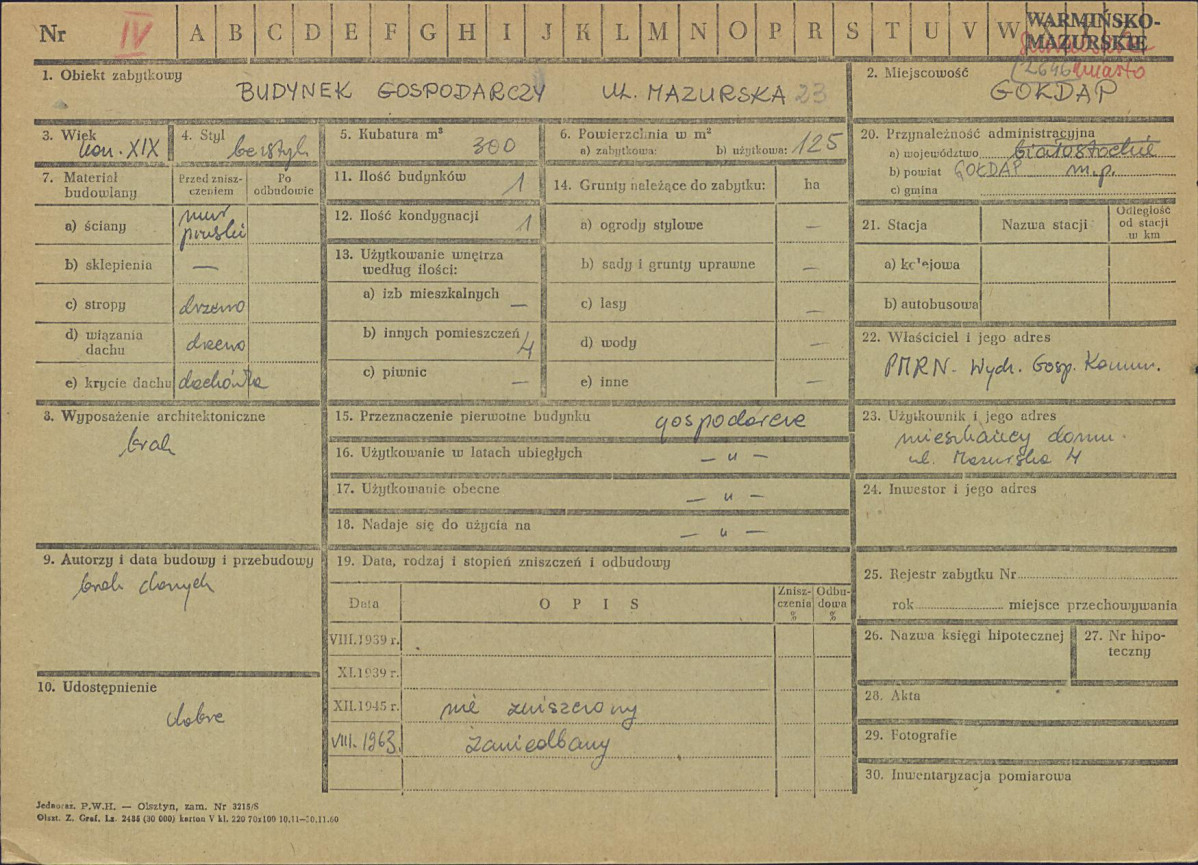 Nr IV A B C D E F G H I J K L M N O P R S T U V W WARMIŃSKO-
MAZURSKIE
2646 miasto
1. Obiekt zabytkowy
BUDYNEK GOSPODARCZY UL. MAZURSKA 23
2. Miejscowość
GOŁDAP
3. Wiek
kon. XIX
4. Styl
bezstyl.
5. Kubatura m³
300
6. Powierzchnia w m²
a) zabytkowa: b) użytkowa: 125
20. Przynależność administracyjna
a) województwo białostockie
b) powiat GOŁDAP m.p.
c) gmina
7. Materiał budowlany
Przed zniszczeniem
Po odbudowie
a) ściany mur pruski
b) sklepienia —
c) stropy drzewo
d) wiązania dachu drewno
e) krycie dachu dachówka
11. Ilość budynków 1
12. Ilość kondygnacji 1
13. Użytkowanie wnętrza
według ilości:
a) izb mieszkalnych —
b) innych pomieszczeń 4
c) piwnic —
14. Grunty należące do zabytku: ha
a) ogrody stylowe —
b) sady i grunty uprawne —
c) lasy —
d) wody —
e) inne —
21. Stacja
Nazwa stacji
Odległość
od stacji
w km
a) kolejowa
b) autobusowa
22. Właściciel i jego adres
PMRN. Wydz. Gosp. Komun.
8. Wyposażenie architektoniczne
brak
15. Przeznaczenie pierwotne budynku gospodarcze
16. Użytkowanie w latach ubiegłych — „ —
17. Użytkowanie obecne — „ —
18. Nadaje się do użycia na — „ —
23. Użytkownik i jego adres
mieszkańcy domu.
ul. Mazurska 4
24. Inwestor i jego adres
9. Autorzy i data budowy i przebudowy
brak danych
10. Udostępnienie
dobre
19. Data, rodzaj i stopień zniszczeń i odbudowy
Data
OPIS
Zniszczenia
%
Odbudowa
%
VIII.1939 r.
XI.1939 r.
XII.1945 r. nie zniszczony
VIII. 1963. zaniedbany
25. Rejestr zabytku Nr
rok miejsce przechowywania
26. Nazwa księgi hipotecznej
27. Nr hipo-
teczny
28. Akta
29. Fotografie
30. Inwentaryzacja pomiarowa
Jednoraz. P.W.H. — Olsztyn, zam. Nr 3215/S
Olszt. Z. Graf. Lz. 2486 (30 000) karton V kl. 220 70x100 10.11—30.11.60